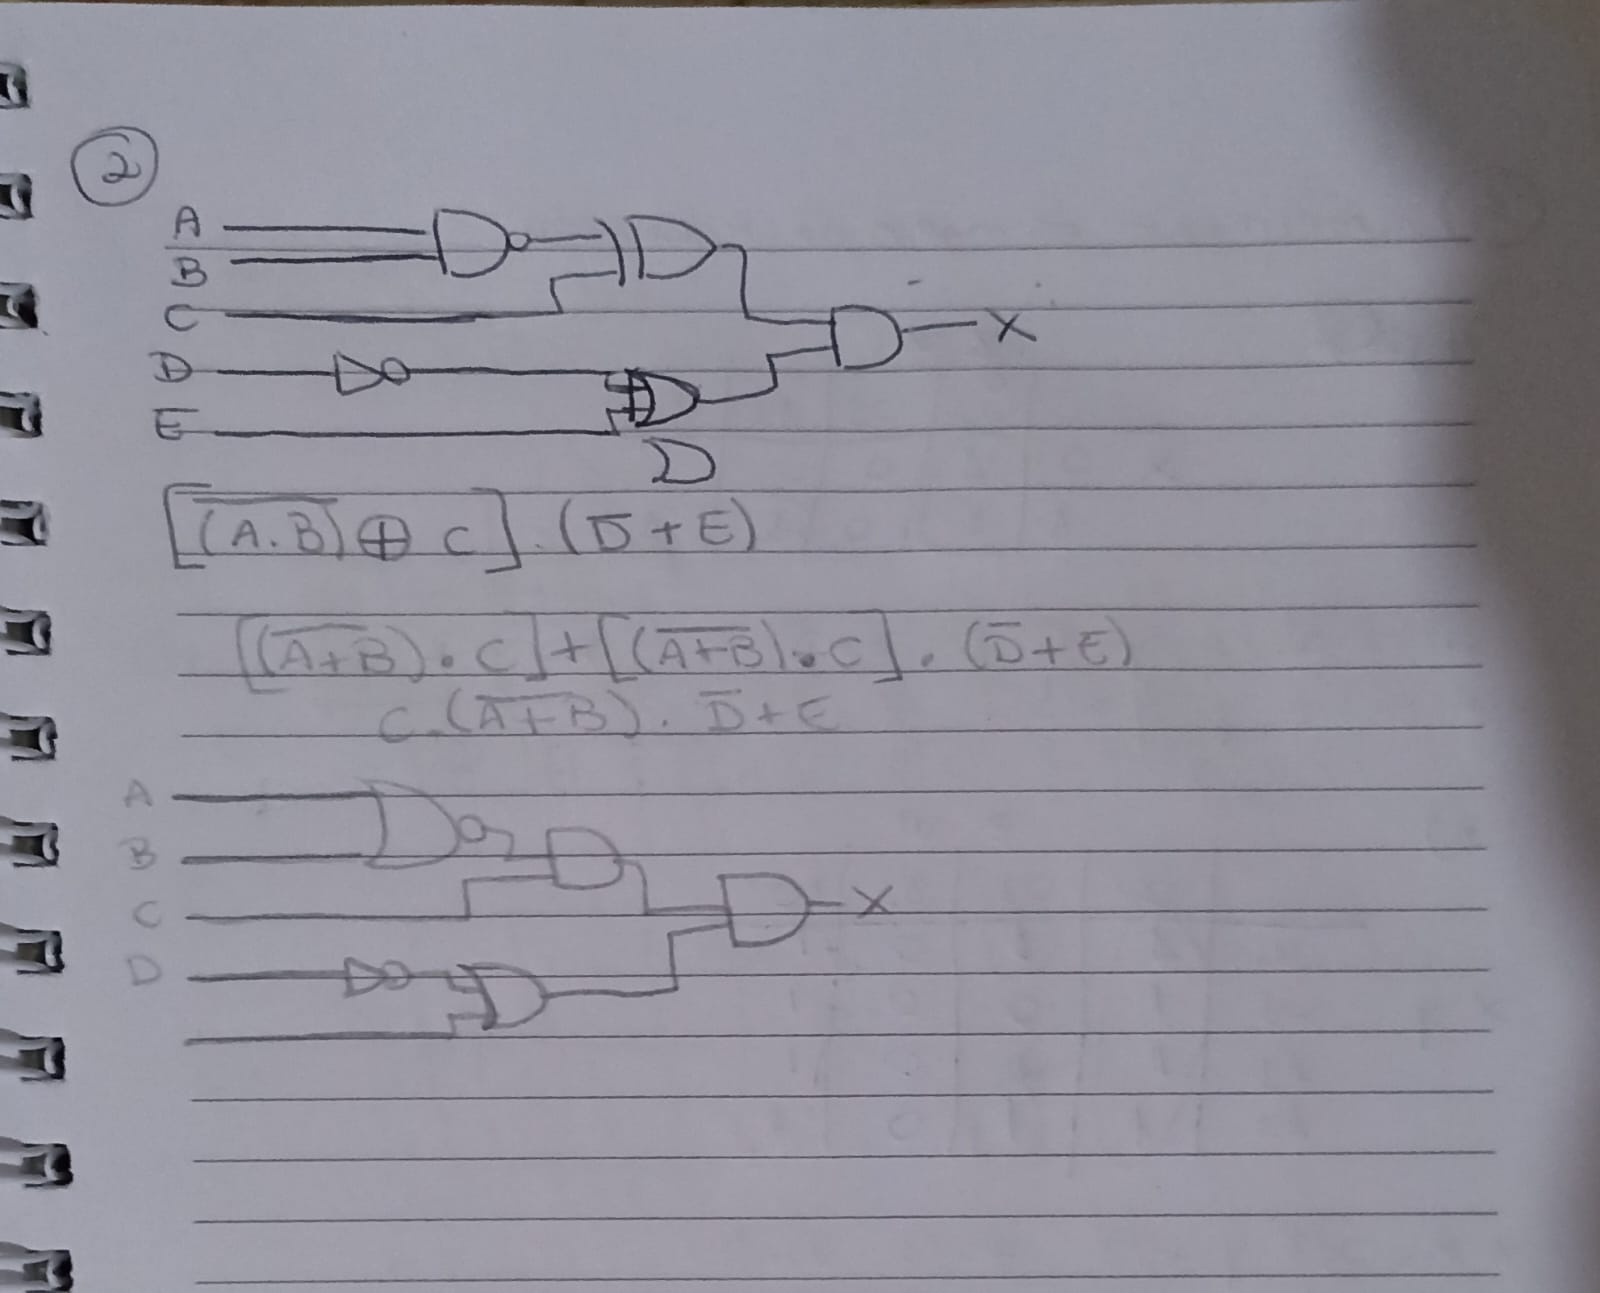 2
A
B
C
D
E
X
[(A̅.̅B̅)̅ ⊕ C] . (D̅ + E)
[(A̅+̅B̅) . C] + [(A̅+̅B̅) . C] . (D̅ + E)
C . (A̅+̅B̅) . D̅ + E
A
B
C
X
D